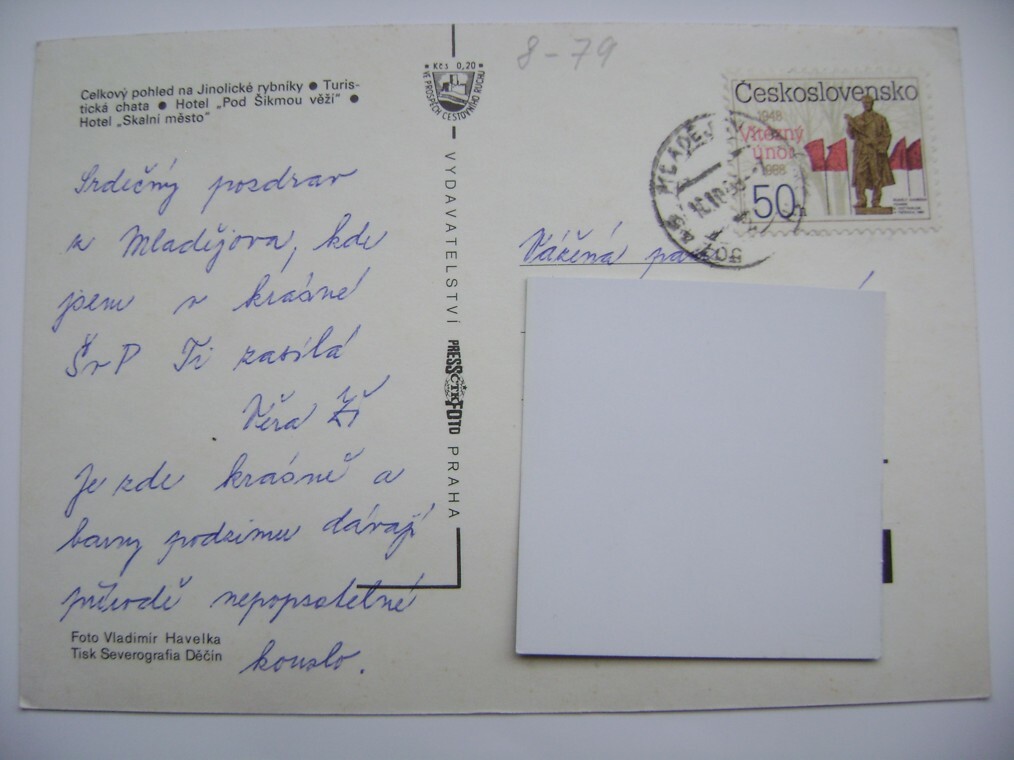 8-79
Kčs 0,20
VE PROSPĚCH CESTOVNÍHO RUCHU
Celkový pohled na Jinolické rybníky ● Turis-
tická chata ● Hotel „Pod Šikmou věží" ●
Hotel „Skalní město"
Srdečný pozdrav
z Mladějova, kde
jsem v krásné
ŠvP Ti zasílá
Věra
Je zde krásně a
barvy podzimu dávají
přírodě nepopsatelné
kouzlo.
Foto Vladimír Havelka
Tisk Severografia Děčín
VYDAVATELSTVÍ PRESSFOTO PRAHA
ČTK
Československo
1948
Vítězný
únor
1988
50h
MLADĚJOV
Vážená paní